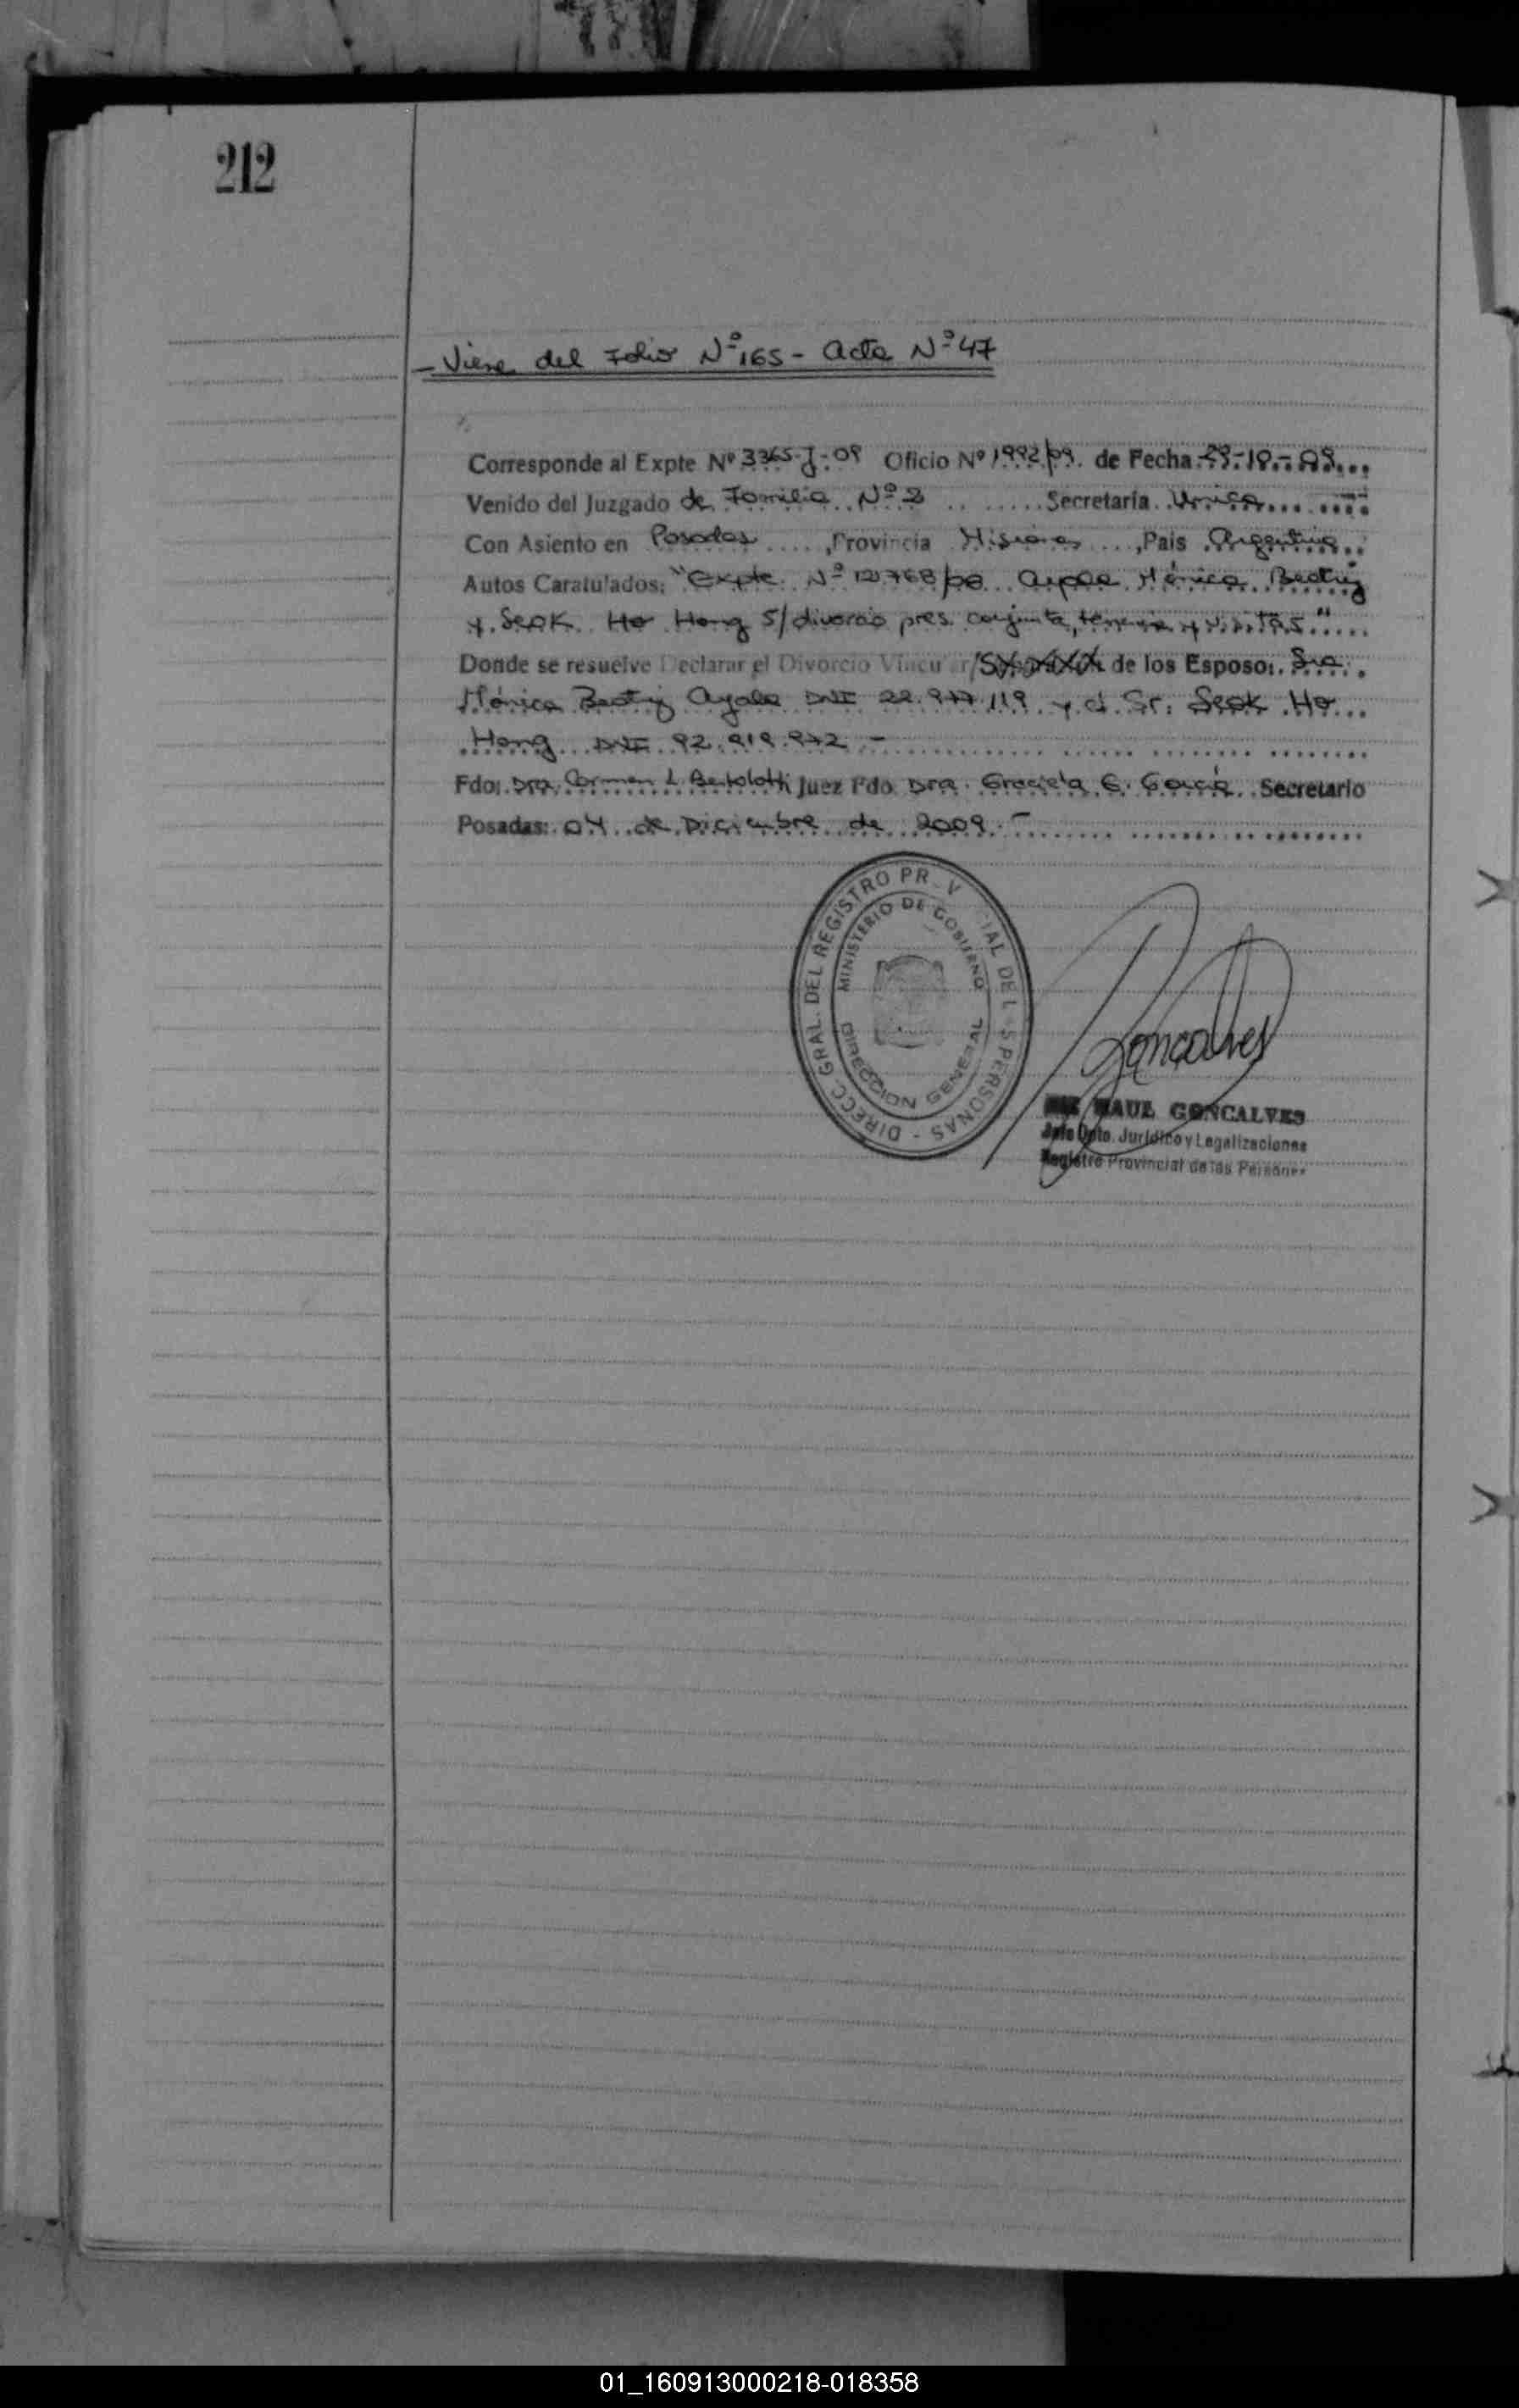 212
- Viene del Folio Nº 165 - Acta Nº 47
Corresponde al Expte Nº 3365-J-09 Oficio Nº 1992/09. de Fecha 29-10-09
Venido del Juzgado de Familia Nº 2 Secretaría Unica
Con Asiento en Posadas, Provincia Misiones, Pais Argentina
Autos Caratulados: "Expte. Nº 12768/08 Ayala Mónica Beatriz
y Seok Ho Hong s/ divorcio pres. conjunta, tenencia y visitas"
Donde se resuelve Declarar el Divorcio Vincular/ de los Esposos. Sra.
Mónica Beatriz Ayala DNI 22.977.119 y el Sr. Seok Ho
Hong DNI 92.919.972 -
Fdo: Dra. Carmen L. Bertolotti Juez Fdo Dra. Graciela E. García Secretario
Posadas: 04 de Diciembre de 2009.-
DIRECC. GRAL. DEL REGISTRO PROVINCIAL DE LAS PERSONAS -
MINISTERIO DE GOBIERNO
DIRECCION GENERAL
Goncalves
RAUL GONCALVES
Jefe Dpto. Jurídico y Legalizaciones
Registro Provincial de las Personas
01_160913000218-018358